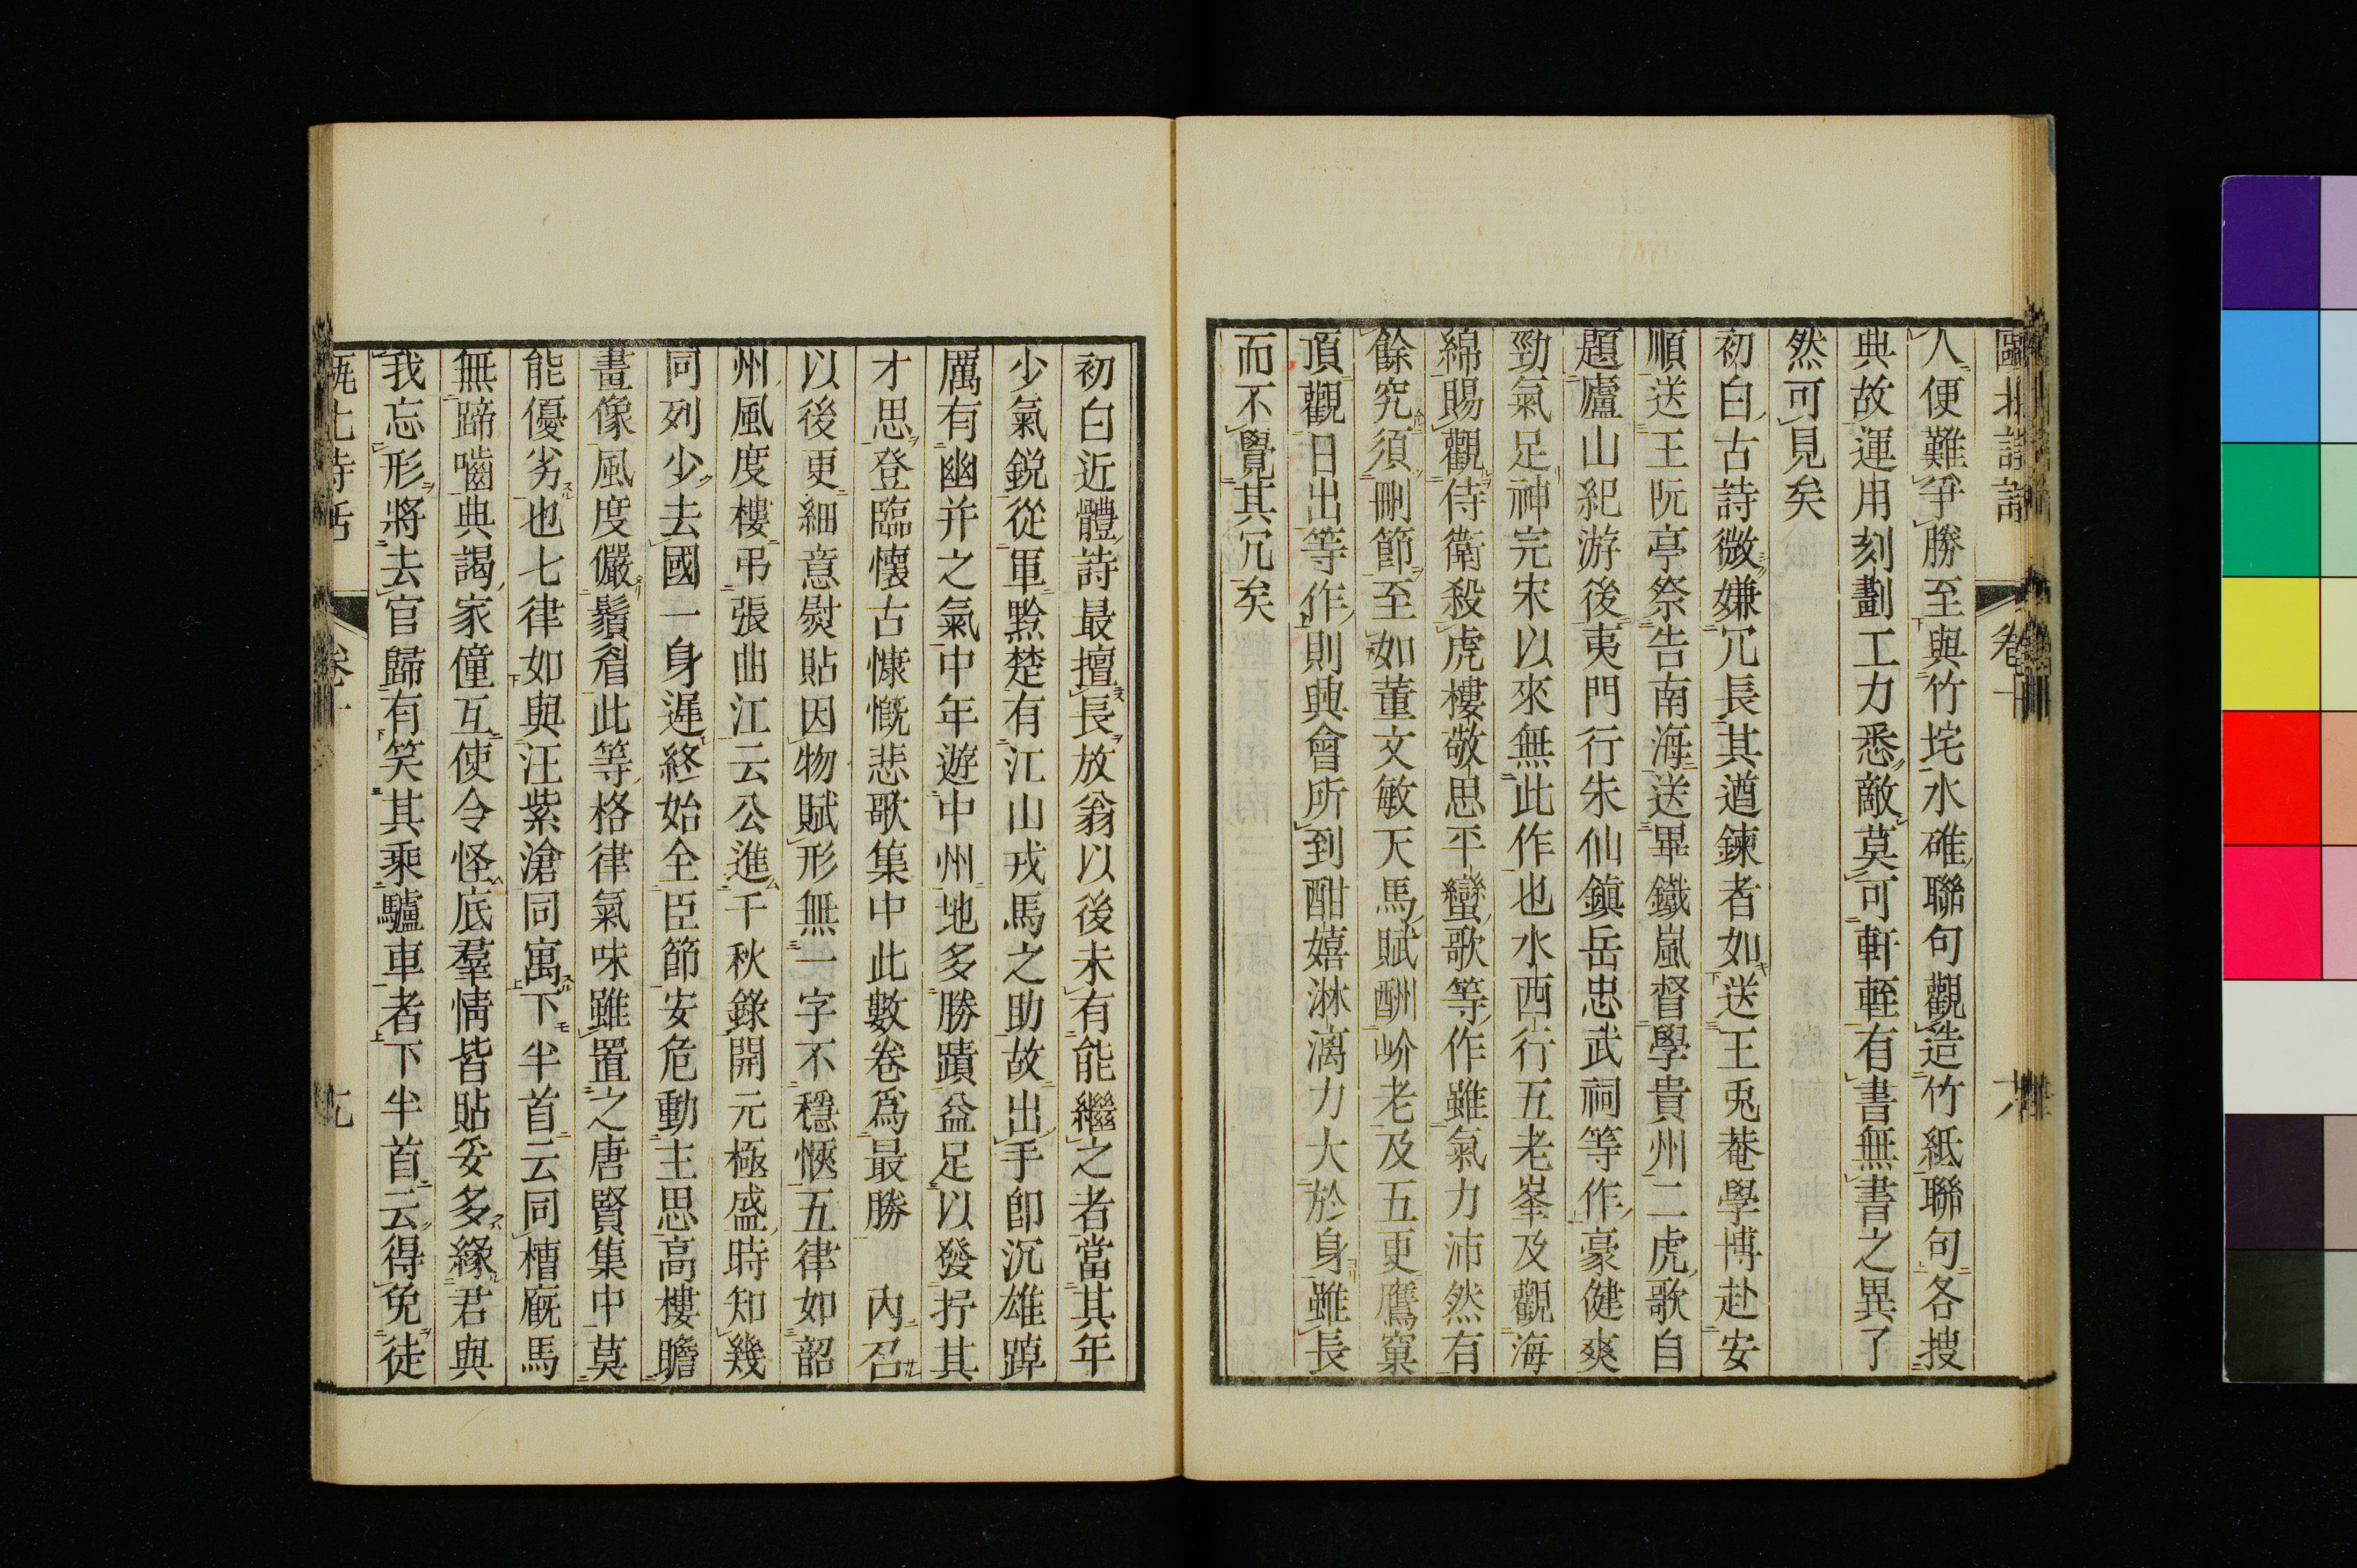 甌北詩話 卷十
人便難爭勝至與竹垞水碓聯句觀造竹紙聯句各搜
典故運用刻劃工力悉敵莫可軒輊有書無書之異了
然可見矣
初白古詩微嫌冗長其遒鍊者如送王兎菴學博赴安
順送王阮亭祭告南海送畢鐵嵐督學貴州二虎歌自
題廬山紀游後夷門行朱仙鎮岳忠武祠等作豪健爽
勁氣足神完宋以來無此作也水西行五老峯及觀海
綿賜觀侍衛殺虎樓敬思平蠻歌等作雖氣力沛然有
餘究須刪節至如董文敏天馬賦酬岕老及五更鷹窠
頂觀日出等作則興會所到酣嬉淋漓力大於身雖長
而不覺其冗矣
初白近體詩最擅長放翁以後未有能繼之者當其年
少氣鋭從軍黔楚有江山戎馬之助故出手卽沉雄踔
厲有幽并之氣中年遊中州地多勝蹟益足以發抒其
才思登臨懷古慷慨悲歌集中此數卷爲最勝 內召
以後更細意熨貼因物賦形無一字不穩愜五律如韶
州風度樓弔張曲江云公進千秋錄開元極盛時知幾
同列少去國一身遲終始全臣節安危動主思高樓瞻
畫像風度儼鬚眉此等格律氣味雖置之唐賢集中莫
能優劣也七律如與汪紫滄同寓下半首云同槽廐馬
無蹄嚙典謁家僮互使令怪底羣情皆貼妥多緣君與
我忘形將去官歸有笑其乘驢車者下半首云得免徒